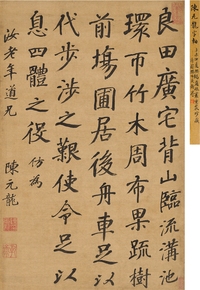 良田廣宅背山臨流溝池
環帀竹木周布果蔬樹
前場圃居後舟車足以
代步涉之艱使令足以
息四體之役 仿為
汝老年道兄
陳元龍